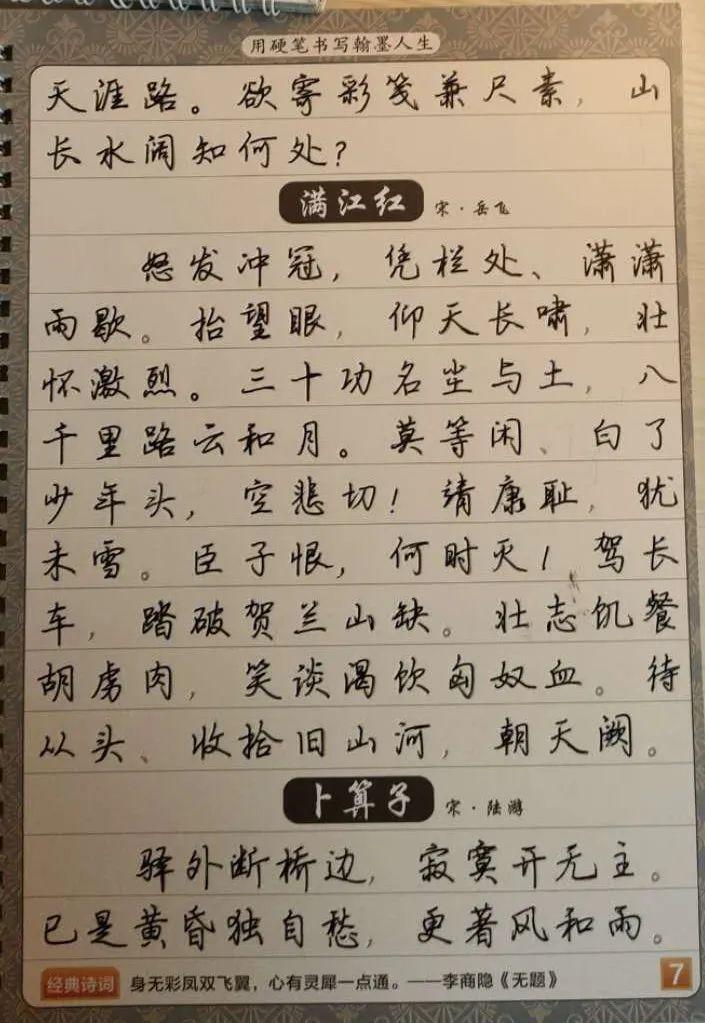 用硬笔书写翰墨人生
天涯路。欲寄彩笺兼尺素，山
长水阔知何处？
满江红 宋·岳飞
怒发冲冠，凭栏处、潇潇
雨歇。抬望眼，仰天长啸，壮
怀激烈。三十功名尘与土，八
千里路云和月。莫等闲、白了
少年头，空悲切！靖康耻，犹
未雪。臣子恨，何时灭！驾长
车，踏破贺兰山缺。壮志饥餐
胡虏肉，笑谈渴饮匈奴血。待
从头、收拾旧山河，朝天阙。
卜算子 宋·陆游
驿外断桥边，寂寞开无主。
已是黄昏独自愁，更著风和雨。
经典诗词 身无彩凤双飞翼，心有灵犀一点通。——李商隐《无题》 7